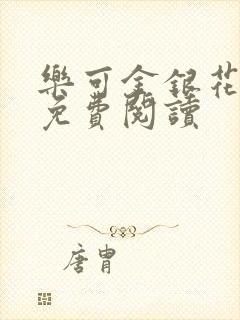 樂可金銀花
免費閱讀
唐胄